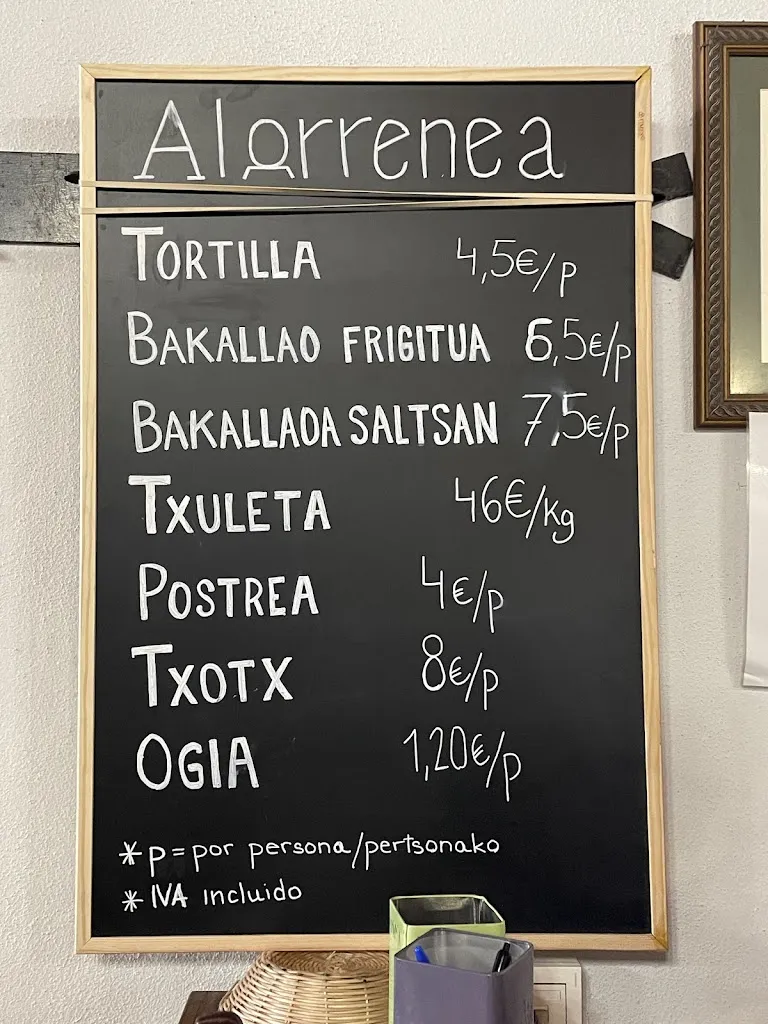 Alorrenea
TORTILLA 4,5€/p
BAKALLAO FRIGITUA 6,5€/p
BAKALLAOA SALTSAN 7,5€/p
TXULETA 46€/kg
POSTREA 4€/p
TXOTX 8€/p
OGIA 1,20€/p
* p = por persona/pertsonako
* IVA incluido